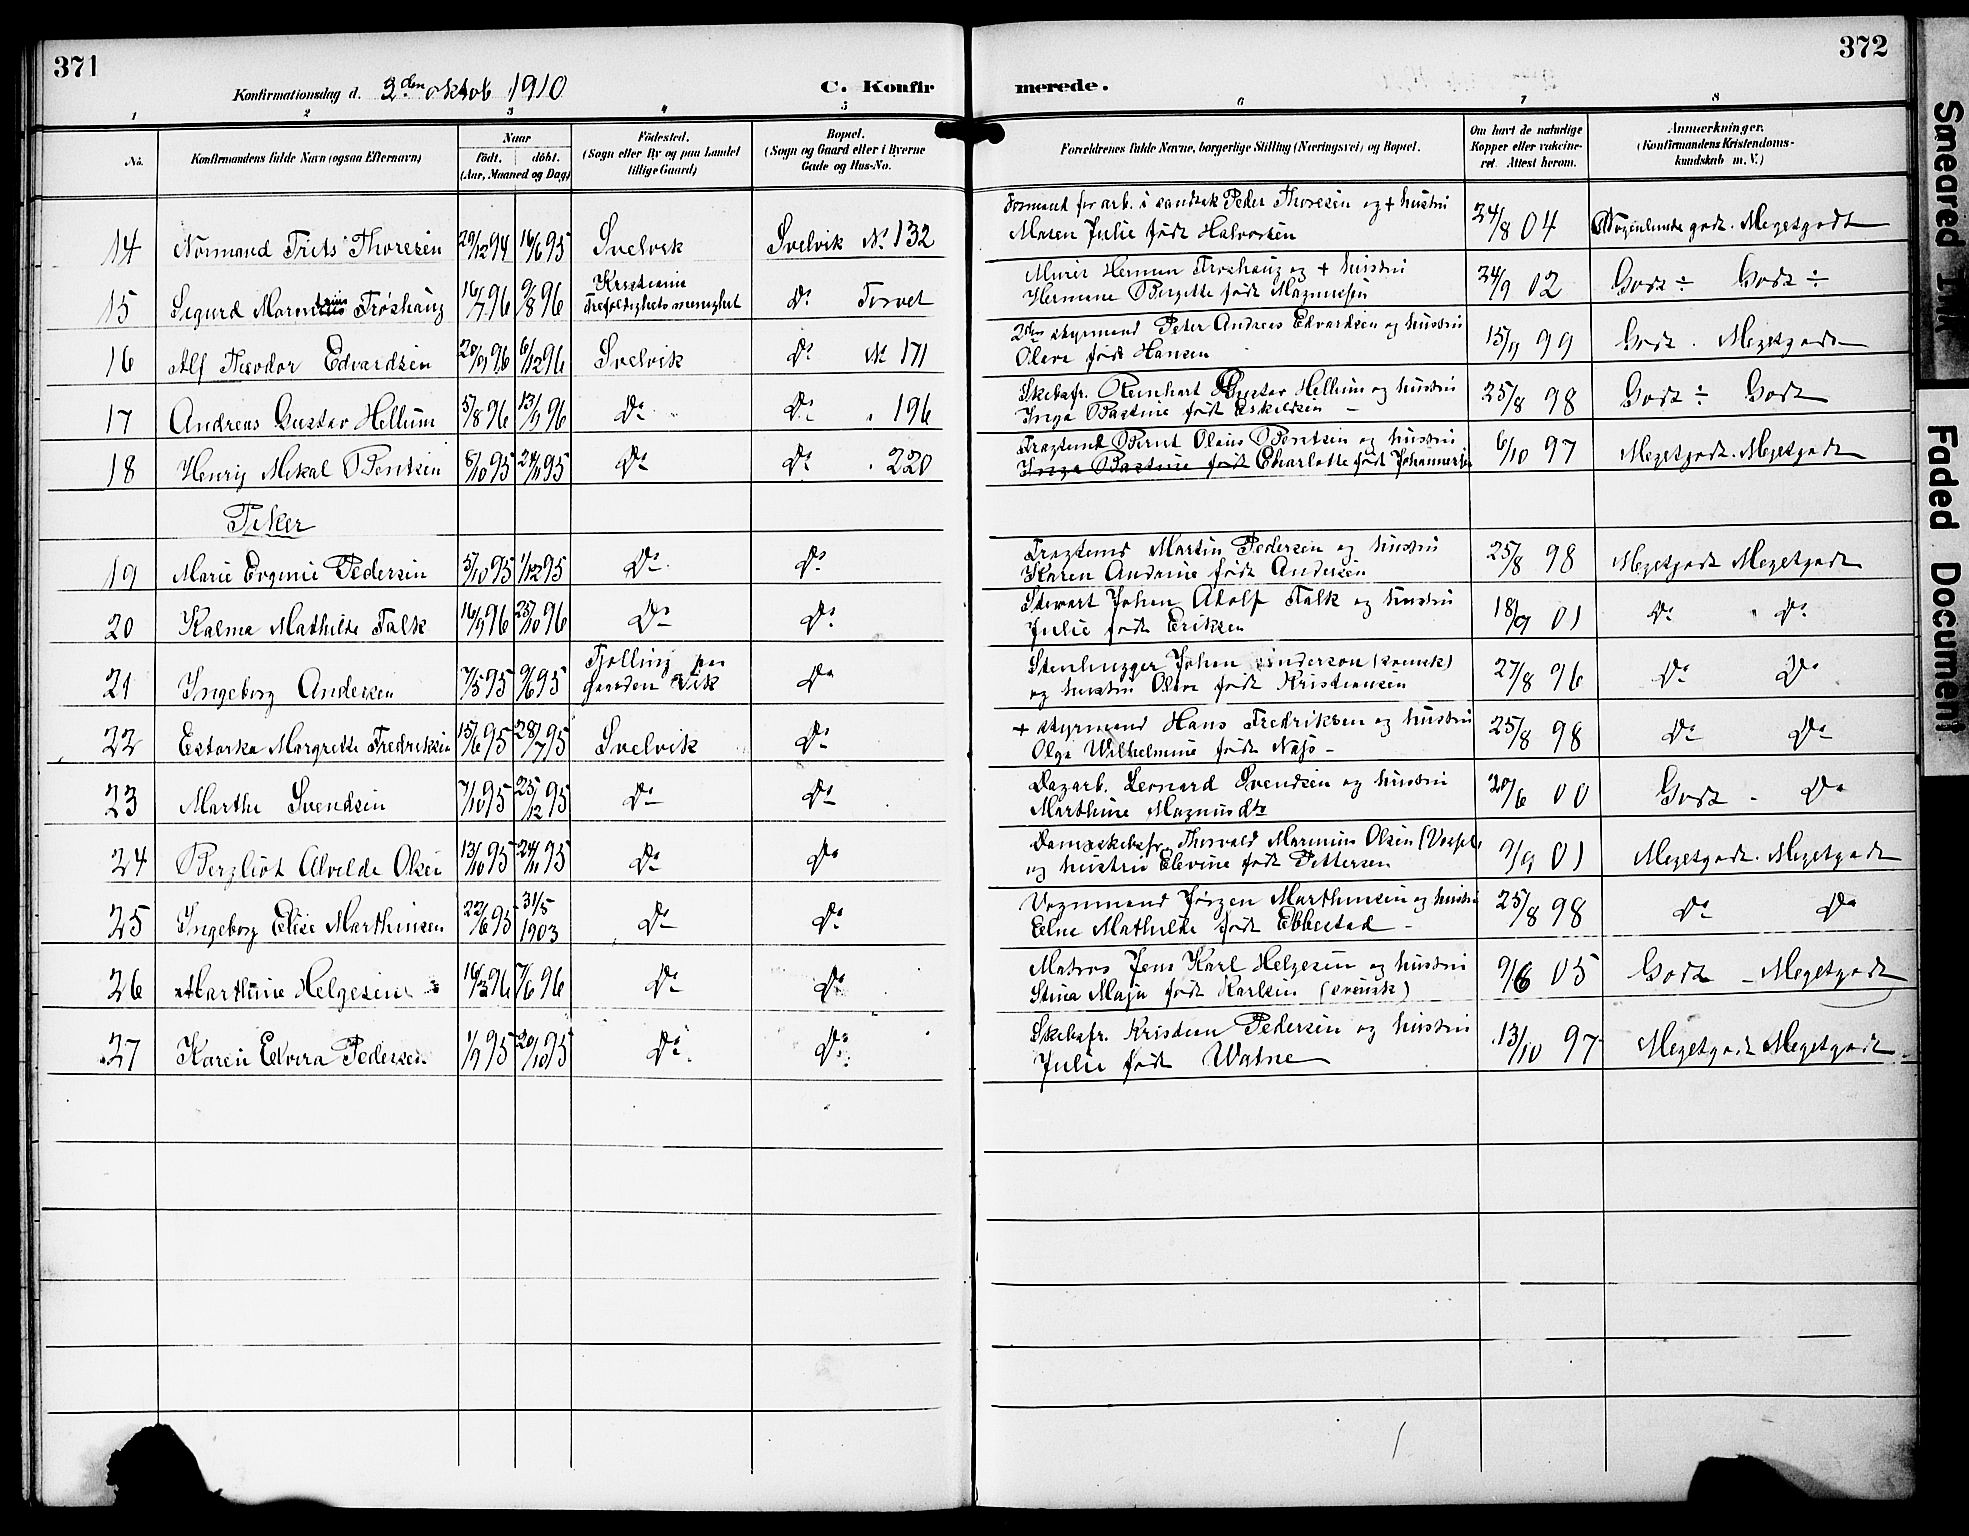 371
372
Konfirmationsdag d. 2den oktob 1910
C. Konfirmerede.
1 2 3 4 5 6 7 8
No.
Konfirmandens fulde Navn (ogsaa Efternavn)
Naar
født. døbt.
(Aar, Maaned og Dag)
Fødested.
(Sogn eller By og paa Landet
tillige Gaard)
Bopæl.
(Sogn og Gaard eller i Byerne
Gade og Hus-No.
Forældrenes fulde Navne, borgerlige Stilling (Næringsvei) og Bopæl.
Om havt de naturlige
Kopper eller vakcine-
ret. Attest herom.
Anmærkninger.
(Konfirmandens Kristendoms-
kundskab m. V.)
Formand for arb. i sandtak Peder Thoresen og + hustru
14 Normand Frits Thoresen 29/12 94 16/6 95 Svelvik Svelvik No 132 Maren Julie født Halvorsen 24/8 04 Nogenlunde godt. Megetgodt
Kristiania Murer Herman Frøshaug og + hustru
15 Sigurd Frøshaug 16/7 96 9/8 96 Trefoldighets menighet Do Torvet Hermine Birgitte født Magnussen 24/9 02 Godt ÷ Godt ÷
2den styrmand Peter Andreas Edvardsen og hustru
16 Alf Theodor Edvardsen 20/9 96 6/12 96 Svelvik Do No 171 Olava født Hansen 15/9 99 Godt. Megetgodt
Skibsfr. Reinhart Gustav Hellum og hustru
17 Andreas Gustav Hellum 5/8 96 13/9 96 Do Do " 196 Inga Bastine født Eskildsen 25/8 98 Godt ÷ Godt
Fragtemd Bernt Olaus Bentsen og hustru
18 Henrij Mikal Bentsen 8/10 95 24/11 95 Do Do " 220 Inga Bastine født Charlotte født Johannesen 6/10 97 Megetgodt. Megetgodt
Piker
Fragtemd Martin Pedersen og hustru
19 Marie Evgenie Pedersen 5/10 95 1/12 95 Do Do Karen Andrine født Andersen 25/8 98 Megetgodt Megetgodt
Stewart Johan Adolf Falk og hustru
20 Kalma Mathilde Falk 16/9 96 25/10 96 Do Do Julie født Eriksen 18/9 01 Do Do
Tjølling paa Stenhugger Johan Anderson (svensk)
21 Ingeborg Andersen 7/5 95 9/6 95 gaarden Vik Do og hustru Olava født Kristiansen 27/8 96 Do Do
+ styrmand Hans Fredriksen og hustru
22 Margrethe Fredriksen 15/6 95 28/7 95 Svelvik Do Olga Wilhelmine født Næss 25/8 98 Do Do
Dagarb. Leonard Svendsen og hustru
23 Marthe Svendsen 7/10 95 25/12 95 Do Do Marthine Magnusdtr 20/6 00 Godt - Do
Damskibsfr. Thorvald Marinius Olsen
24 Bergliot Alvilde Olsen 13/10 95 24/11 95 Do Do og hustru Elevine født Pettersen 9/9 01 Megetgodt. Megetgodt
Vognmand Jørgen Marthinsen og hustru
25 Ingeborg Elise Marthinsen 22/6 95 31/5 1903 Do Do Eline Mathilde født Ebbestad 25/8 98 Do Do
Matros Jens Karl Helgesen og hustru
26 Marthine Helgesen 16/3 96 7/6 96 Do Do Stina Maja født Karlsen (svensk) 9/6 05 Godt - Megetgodt
Skibsfr. Kristian Pedersen og hustru
27 Karen Elvira Pedersen 1/9 95 20/10 95 Do Do Julie født Watne 13/10 97 Megetgodt Megetgodt
Smeared Ink
Faded Document